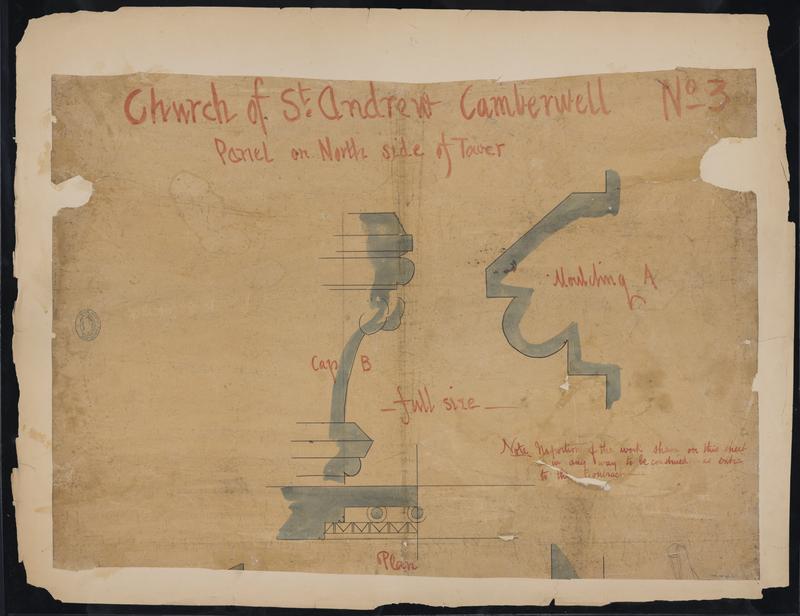 Church of St. Andrew Camberwell No 3
Panel on North side of Tower
Moulding A
Cap B
full size
Note. No portion of the work shewn on this sheet
in any way to be construed as extra
to the Contract
Plan